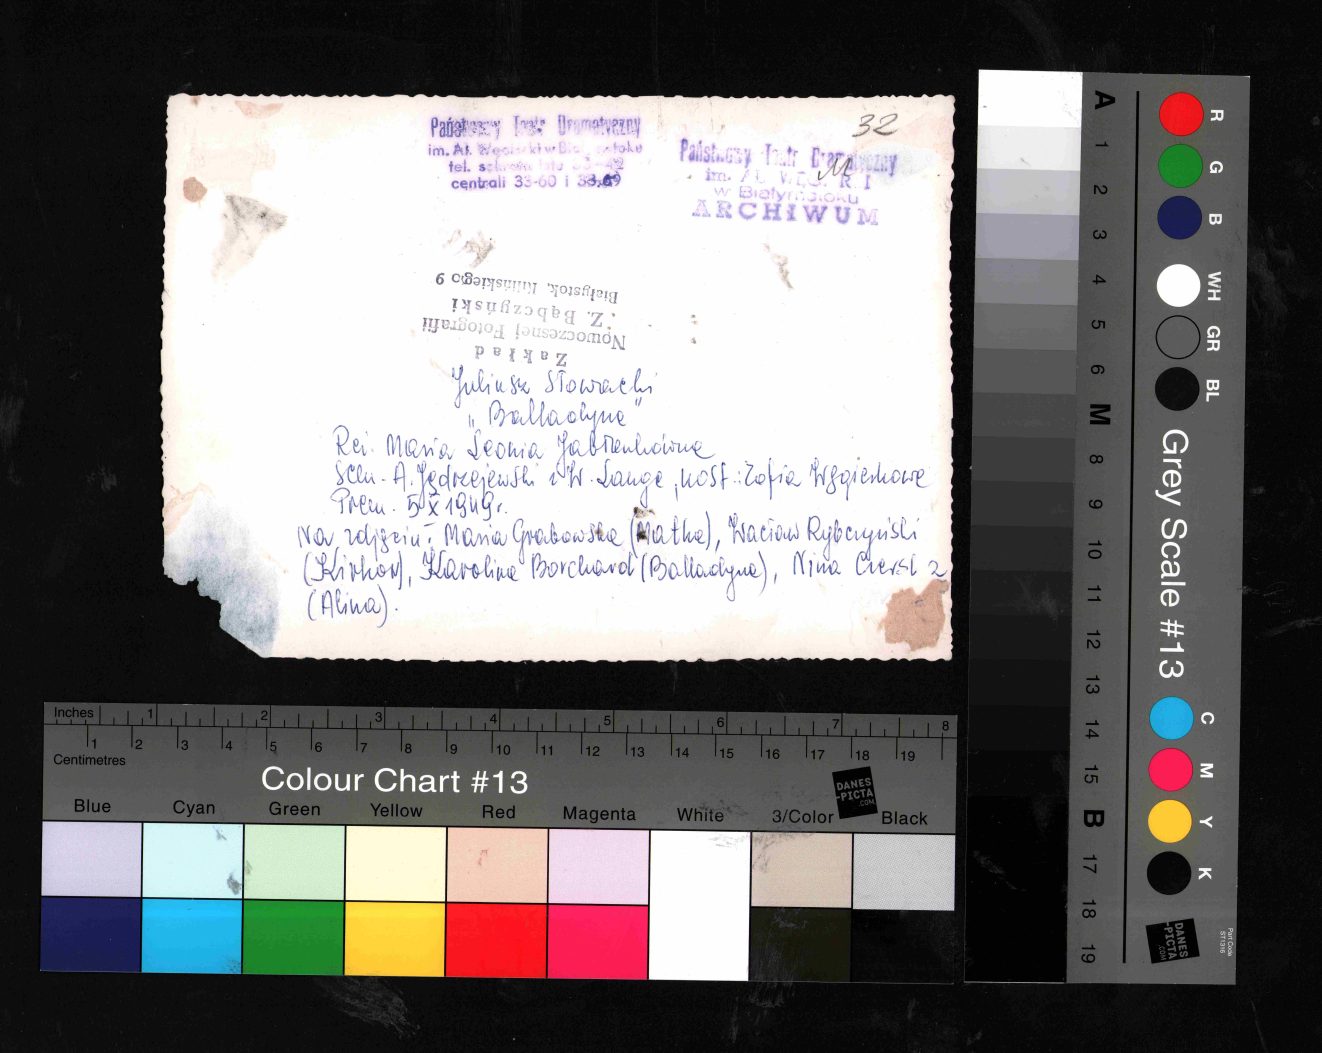 Państwowy Teatr Dramatyczny
im. Al. Węgierki w Białymstoku
tel. sekretariatu 33-42
centrali 33-60 i 33-69
32
Państwowy Teatr Dramatyczny
im. AL. WĘGIERKI
w Białymstoku
ARCHIWUM
M
Zakład
Nowoczesnej Fotografii
Z. Bąbczyński
Białystok, Kilińskiego 9
Juliusz Słowacki
„Balladyna"
Reż. Maria Leonia Jabłonkówna
Scen. A. Jędrzejewski i W. Lange, kost.: Zofia Węgierkowa
Prem. 5 X 1949r.
Na zdjęciu: Maria Grabowska (Matka), Wacław Rybczyński
(Kirkor), Karolina Borchard (Balladyna), Nina
(Alina).
Inches 1 2 3 4 5 6 7 8
1 2 3 4 5 6 7 8 9 10 11 12 13 14 15 16 17 18 19
Centimetres
Colour Chart #13
DANES
-PICTA
.COM
Blue Cyan Green Yellow Red Magenta White 3/Color Black
A 1 2 3 4 5 6 M 8 9 10 11 12 13 14 15 B 17 18 19
R G B WH GR BL
Grey Scale #13
C M Y K
DANES
-PICTA
.COM
Part Code
ST1316